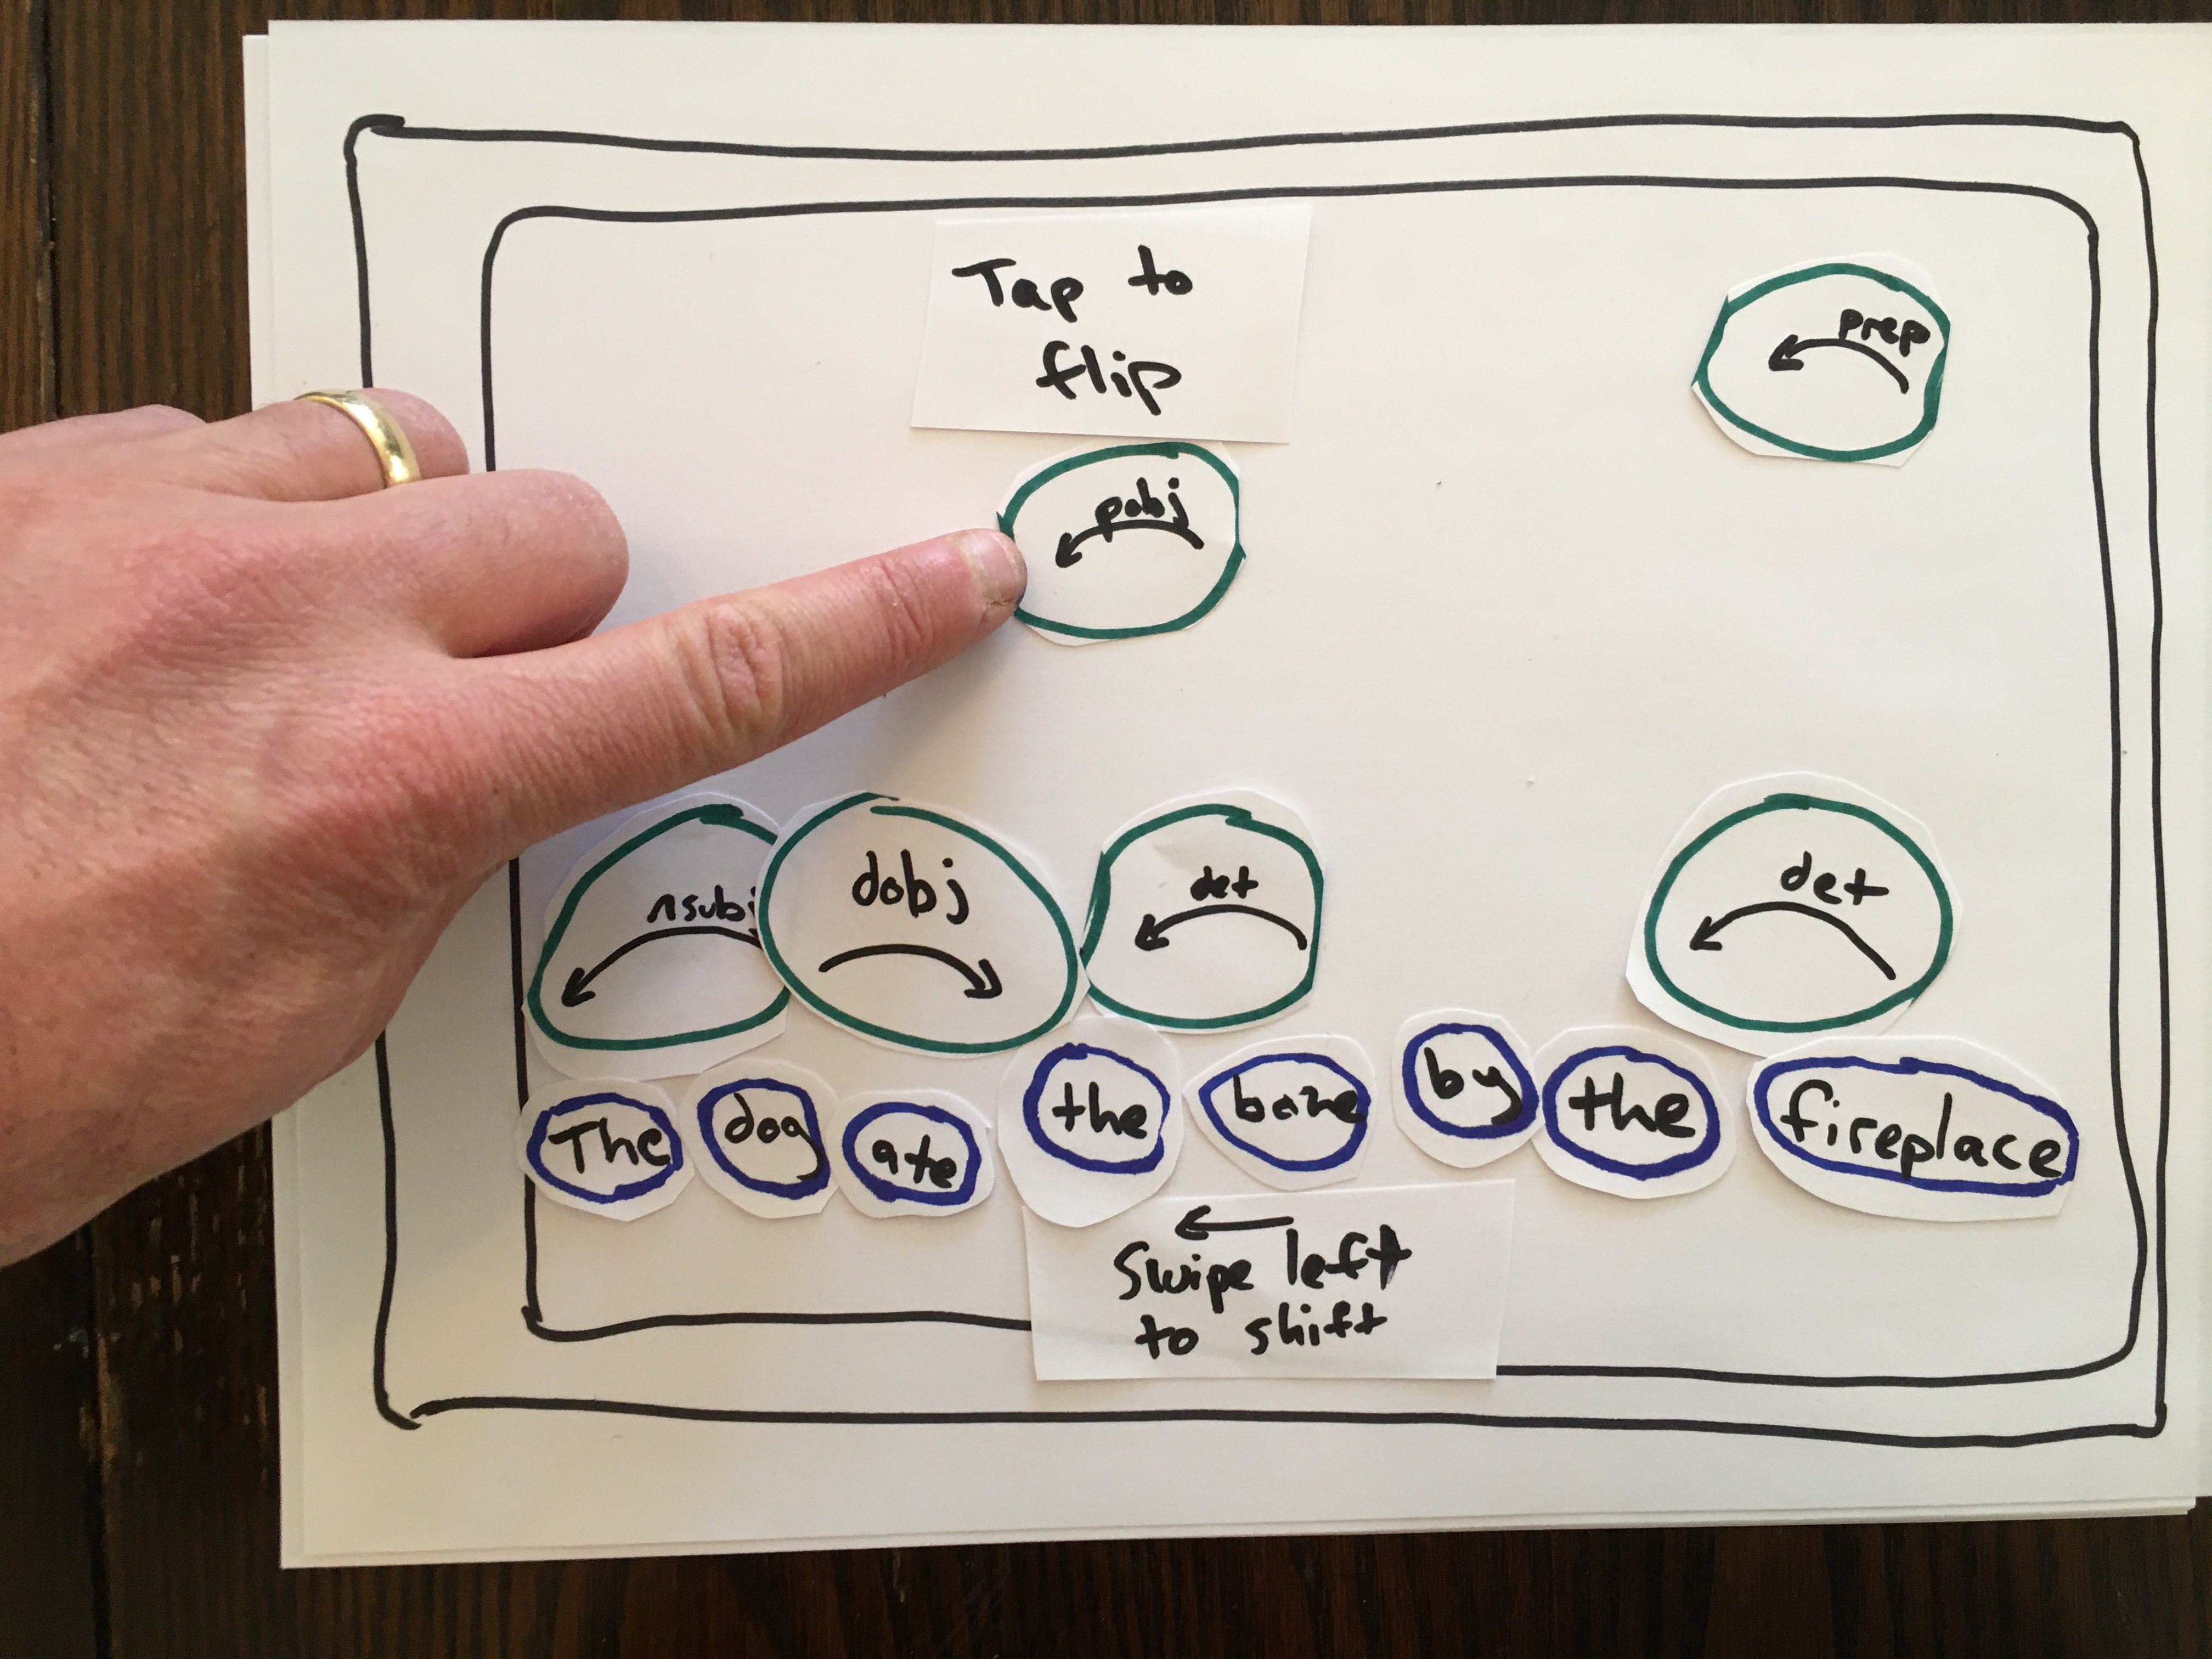 Tap to
flip
prep
pobj
nsubj
dobj
det
det
The dog ate the bone by the fireplace
Swipe left
to shift